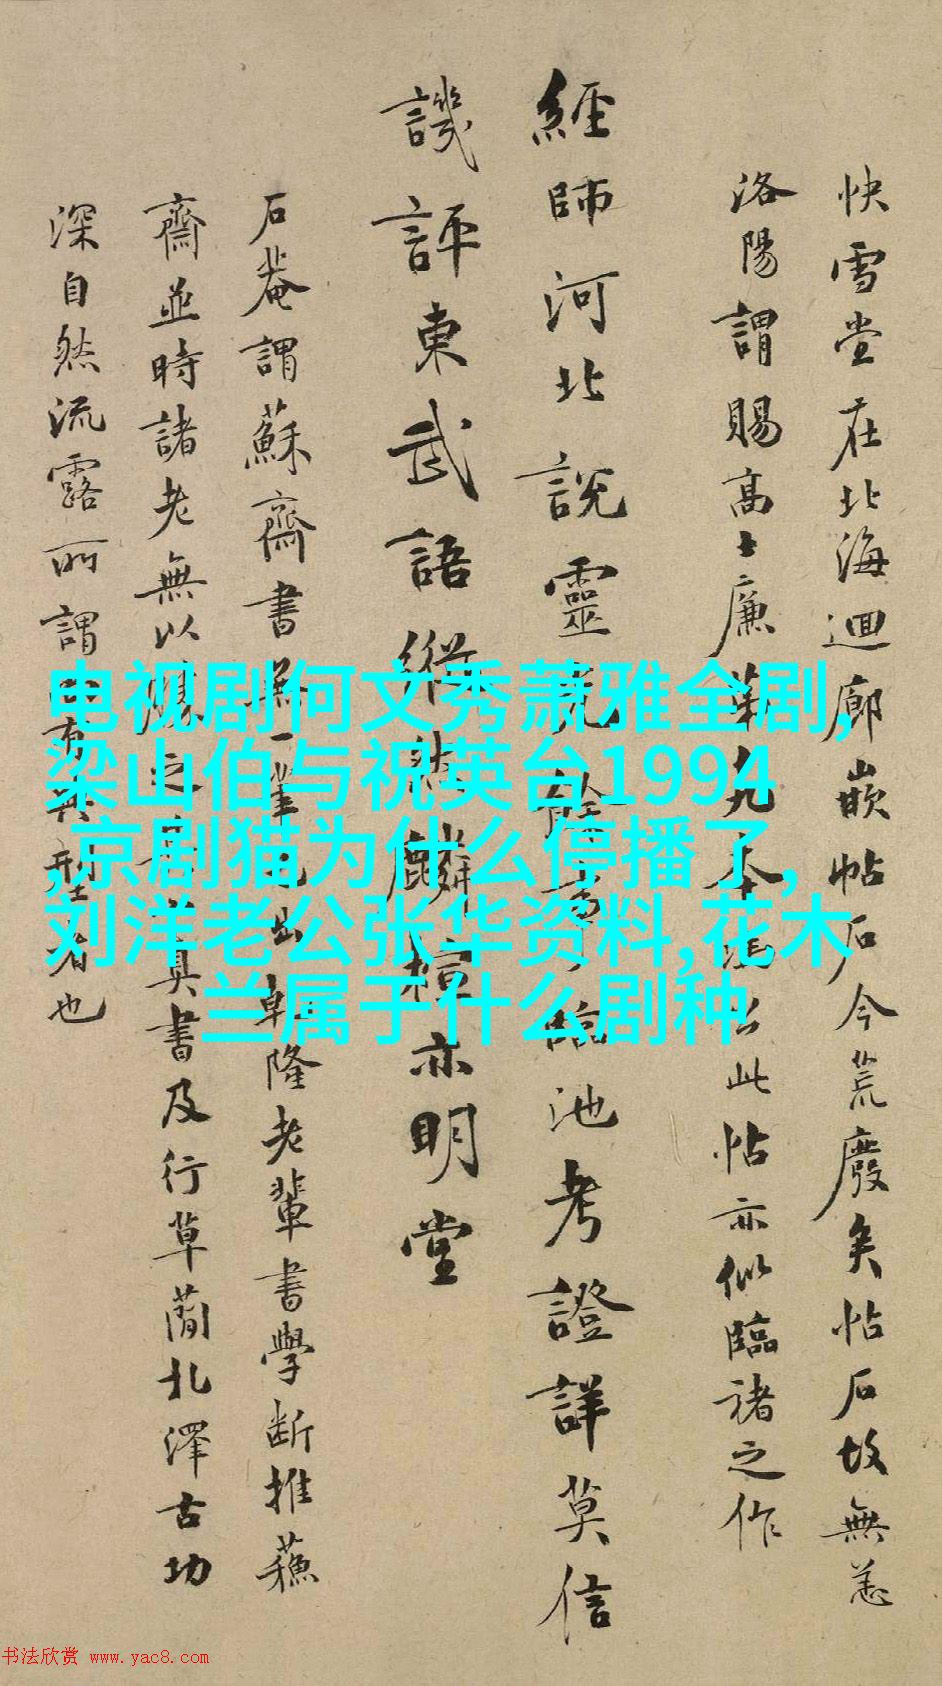 快雪堂在北海迴廊嵌帖石今荒廢矣帖石故無恙
洛陽謂賜高士廉華此帖亦似臨褚之作
經師河北說靈臨池考證詳莫信
譏評東武語縱麟亦明堂
石菴謂蘇齋書無一筆出乾隆老輩書學斷推蘓
齋並時諸老無以真書及行草蘭北澤古功
深自然流露所謂型者也
电视剧何文秀萧雅全剧,
梁山伯与祝英台1994
,京剧猫为什么停播了,
刘洋老公张华资料,花木
兰属于什么剧种
书法欣赏 www.yac8.com